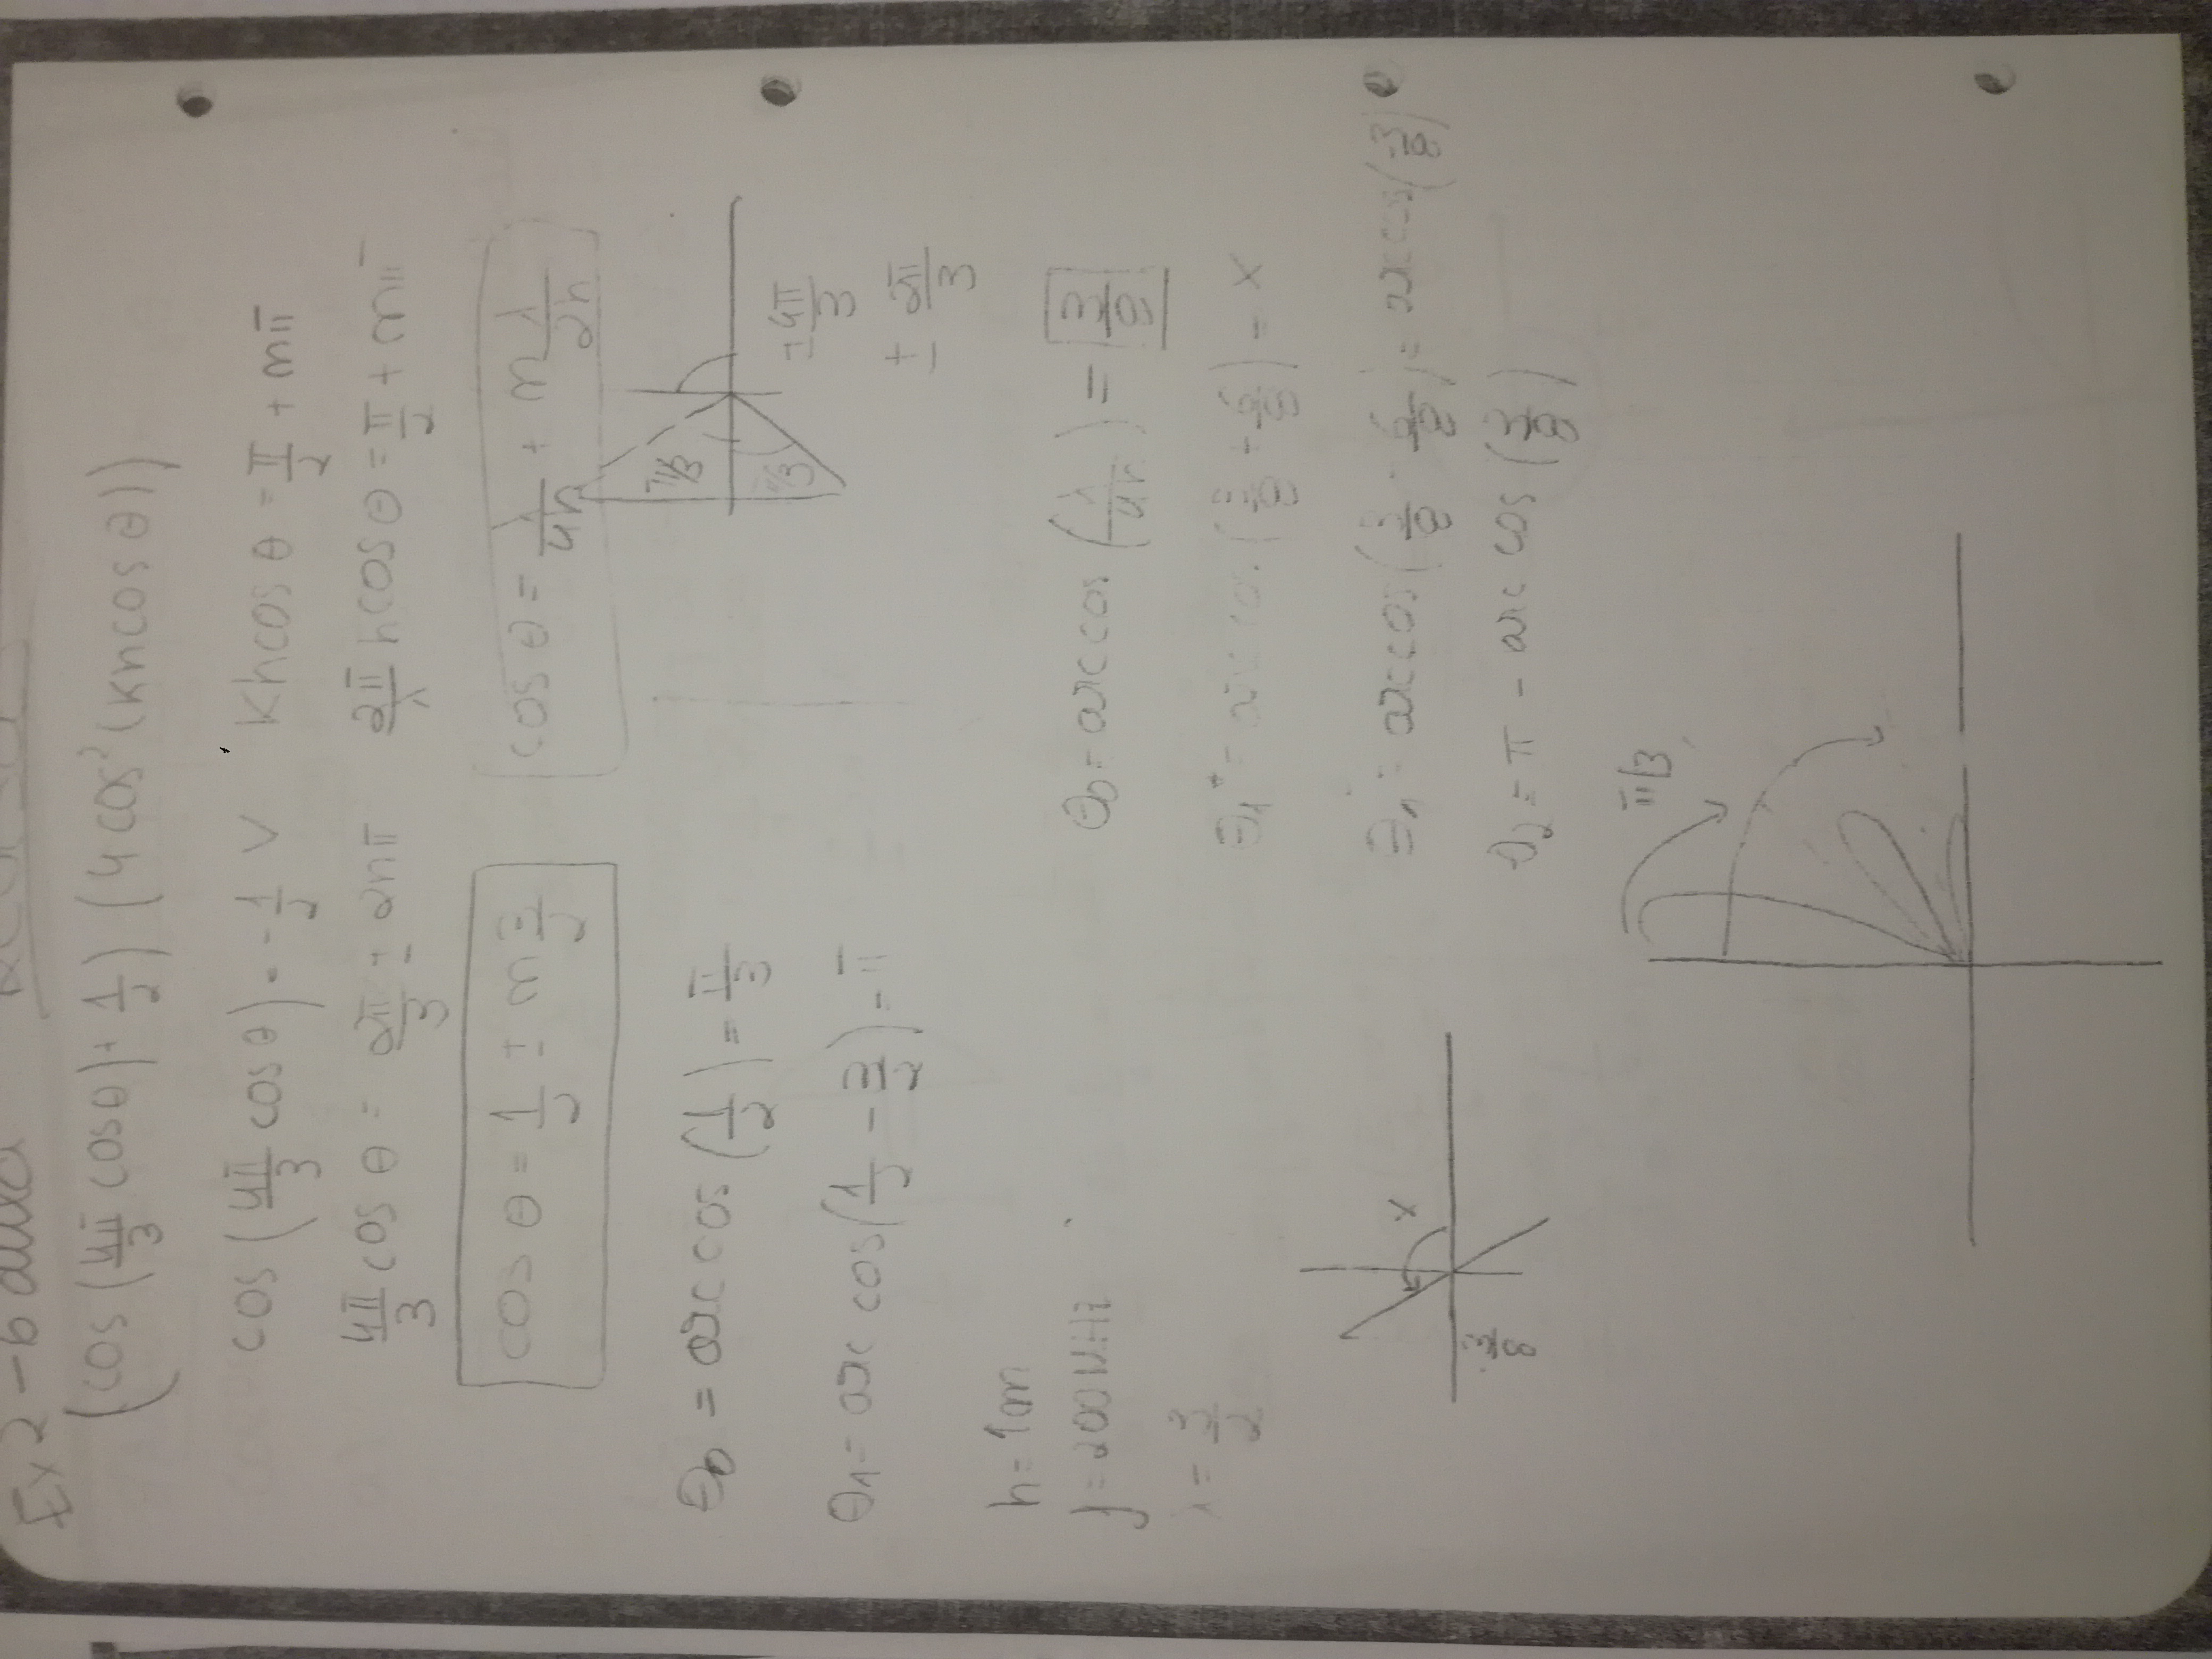 Ex 2 - 6
(cos(4π/3 cosθ) + 1/2) (4cos²(Kh cos θ))
cos(4π/3 cosθ) = -1/2 V Kh cos θ = π/2 + mπ
4π/3 cos θ = 2π/3 ± 2nπ 2π/λ h cos θ = π/2 + mπ
cos θ = 1/2 ± m 3/2 cos θ = λ/4h + m λ/2h
π/3
θ0 = arccos(1/2) = π/3
π/3
± 4π/3
θ1 = arc cos(1/2 - 3/2) = π
± 2π/3
h = 1m
f = 200 MHz
θ0 = arccos(λ/4h) = 3/8
λ = 3/2
θ1⁺ = arccos(3/8 + 6/8) = x
θ1⁻ = arccos(3/8 - 6/8) = arccos(-3/8)
x
-3/8
θ2 = π - arc cos(3/8)
π/3